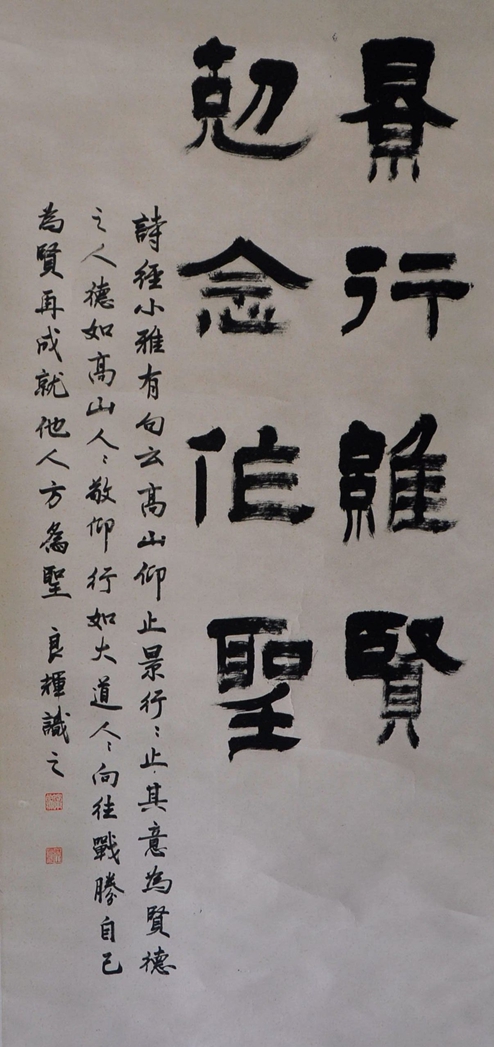 景行維賢
剋念作聖
詩經小雅有句云高山仰止景行〻止其意為賢德
之人德如高山人〻敬仰行如大道人〻向往戰勝自己
為賢再成就他人方為聖 良輝識之